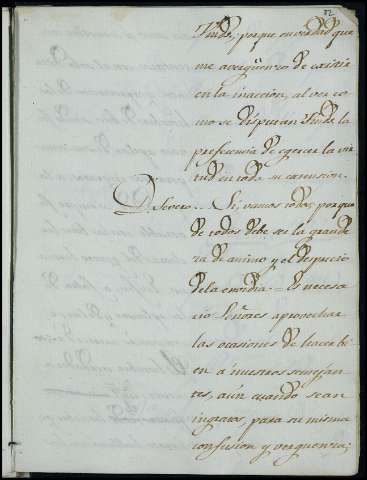 32
Vmds, porque en verdad que
me avergüenzo de caisme
en la inaccion, al ver co
mo se disputan Vmds. la
preferencia de egercer la vir
tud en toda su extension.
D. Severo.. Si, vamos todos, porque
de todos debe ser la grande
za de animo y el desprecio
de la envidia = Es necesa
rio Señores aprovechar
las ocasiones de hacer bi
en a nuestros semejan
tes, aun quando sean
ingratos, para su misma
confusion y verguenza;